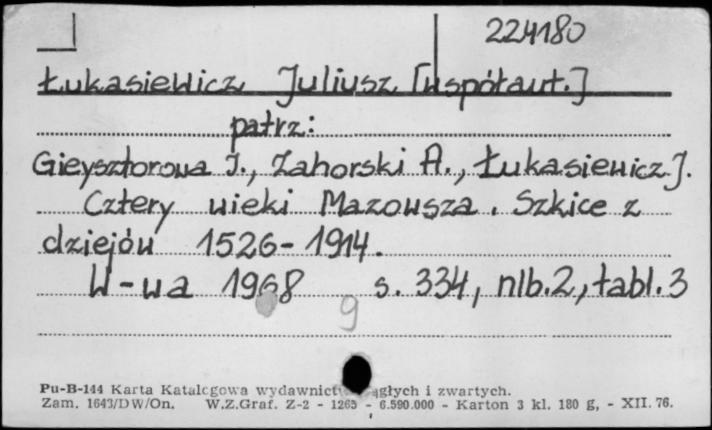 224180
Łukasiewicz Juliusz [współaut.]
patrz:
Gieysztorowa I., Zahorski A., Łukasiewicz J.
Cztery wieki Mazowsza. Szkice z
dziejów 1526-1914.
W-wa 1968 s. 334, nlb.2, tabl.3
9
Pu-B-144 Karta Katalogowa wydawnictw ągłych i zwartych.
Zam. 1643/DW/On. W.Z.Graf. Z-2 - 1265 - 6.590.000 - Karton 3 kl. 180 g, - XII. 76.